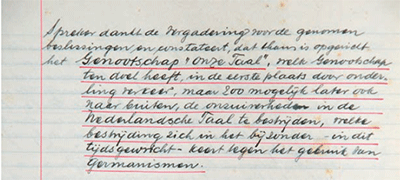 Spreker dankt de Vergadering voor de genomen
beslissingen en constateert, dat thans is opgericht
het Genootschap "Onze Taal", welk Genootschap
ten doel heeft, in de eerste plaats door onder-
ling verkeer, maar zoo mogelijk later ook
naar buiten, de onzuiverheden in de
Nederlandsche Taal te bestrijden, welke
bestrijding zich in het bijzonder - in dit
tijdsgewricht - keert tegen het gebruik van
Germanismen.